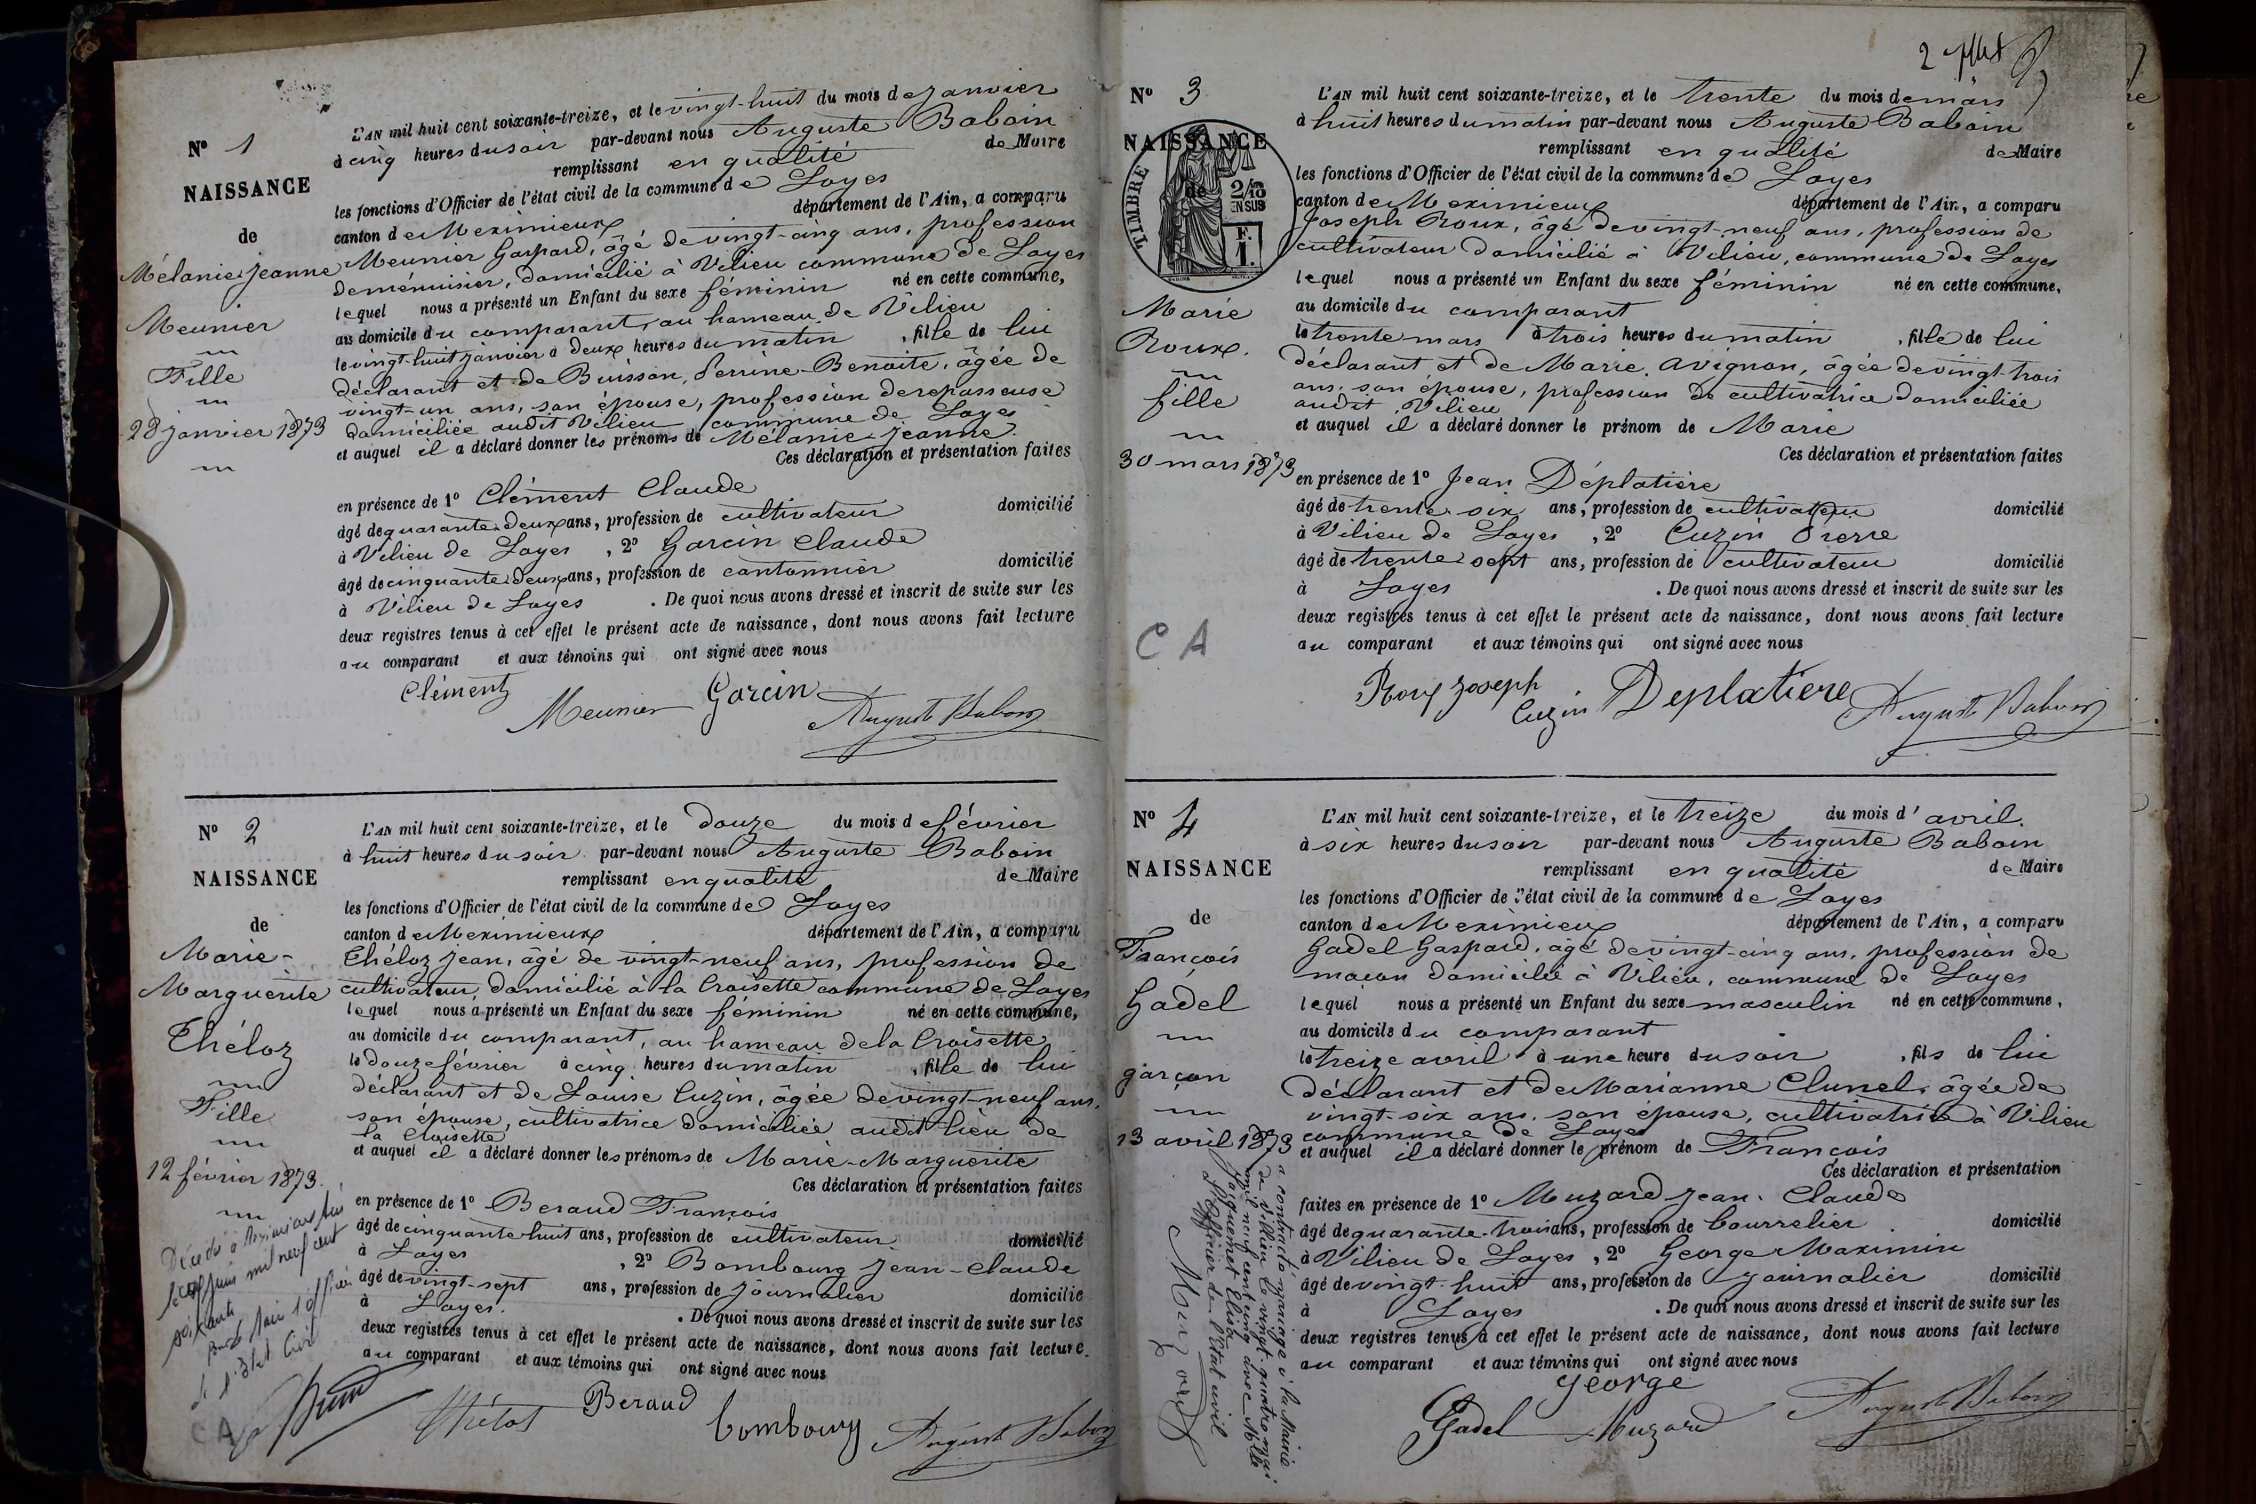 Nº 1
NAISSANCE
de
Mélanie Jeanne
Meunier
Fille
28 janvier 1873
L'AN mil huit cent soixante-treize, et le vingt-huit du mois de janvier
à cinq heures du soir par-devant nous Auguste Baboin
remplissant en qualité de Maire
les fonctions d'Officier de l'état civil de la commune de Loyes
canton de Meximieux département de l'Ain, a comparu
Meunier Gaspard, âgé de vingt-cinq ans, profession
de menuisier, domicilié à Vilieu commune de Loyes
lequel nous a présenté un Enfant du sexe féminin né en cette commune,
au domicile du comparant, au hameau de Vilieu
le vingt-huit janvier à deux heures du matin, fille de lui
déclarant et de Buisson, Perrine-Benoite, âgée de
vingt-un ans, son épouse, profession de repasseuse
domiciliée audit Vilieu commune de Loyes
et auquel il a déclaré donner les prénoms de Mélanie Jeanne.
Ces déclaration et présentation faites
en présence de 1º Clément Claude
âgé de quarante-deux ans, profession de cultivateur domicilié
à Vilieu de Loyes, 2º Garcin Claude
âgé de cinquante-deux ans, profession de cantonnier domicilié
à Vilieu de Loyes. De quoi nous avons dressé et inscrit de suite sur les
deux registres tenus à cet effet le présent acte de naissance, dont nous avons fait lecture
au comparant et aux témoins qui ont signé avec nous
Clément Meunier Garcin Auguste Baboin
Nº 2
NAISSANCE
de
Marie-
Marguerite
Théloz
Fille
12 février 1873.
Décédée à Meximieux
le juin mil neuf cent
soixante
l'officier
de l'Etat Civil
CA
L'AN mil huit cent soixante-treize, et le douze du mois de février
à huit heures du soir par-devant nous Auguste Baboin
remplissant en qualité de Maire
les fonctions d'Officier de l'état civil de la commune de Loyes
canton de Meximieux département de l'Ain, a comparu
Théloz Jean, âgé de vingt-neuf ans, profession de
cultivateur, domicilié à la Croisette commune de Loyes
lequel nous a présenté un Enfant du sexe féminin né en cette commune,
au domicile du comparant, au hameau de la Croisette
le douze février à cinq heures du matin, fille de lui
déclarant et de Louise Cuzin, âgée de vingt-neuf ans,
son épouse, cultivatrice domiciliée audit lieu de
la Croisette
et auquel il a déclaré donner les prénoms de Marie-Marguerite
Ces déclaration et présentation faites
en présence de 1º Beraud François
âgé de cinquante huit ans, profession de cultivateur domicilié
à Loyes, 2º Bombourg Jean-Claude
âgé de vingt-sept ans, profession de journalier domicilié
à Loyes. De quoi nous avons dressé et inscrit de suite sur les
deux registres tenus à cet effet le présent acte de naissance, dont nous avons fait lecture.
au comparant et aux témoins qui ont signé avec nous
Théloz Beraud bombourg Auguste Baboin
2
Nº 3
NAISSANCE
de
TIMBRE
2/10
EN SUS
F.
1.
Marie
Roux.
fille
30 mars 1873
CA
L'AN mil huit cent soixante-treize, et le trente du mois de mars
à huit heures du matin par-devant nous Auguste Baboin
remplissant en qualité de Maire
les fonctions d'Officier de l'état civil de la commune de Loyes
canton de Meximieux département de l'Ain, a comparu
Joseph Roux, âgé de vingt-neuf ans, profession de
cultivateur domicilié à Vilieu, commune de Loyes
lequel nous a présenté un Enfant du sexe féminin né en cette commune,
au domicile du comparant
le trente mars à trois heures du matin, fille de lui
déclarant et de Marie Avignon, âgée de vingt-trois
ans, son épouse, profession de cultivatrice domiciliée
audit Vilieu
et auquel il a déclaré donner le prénom de Marie
Ces déclaration et présentation faites
en présence de 1º Jean Déplatière
âgé de trente-six ans, profession de cultivateur domicilié
à Vilieu de Loyes, 2º Cuzin Pierre
âgé de trente sept ans, profession de cultivateur domicilié
à Loyes. De quoi nous avons dressé et inscrit de suite sur les
deux registres tenus à cet effet le présent acte de naissance, dont nous avons fait lecture
au comparant et aux témoins qui ont signé avec nous
Roux Joseph Cuzin Deplatiere Auguste Baboin
Nº 4
NAISSANCE
de
François
Gadel
garçon
13 avril 1873
a contracté mariage à la Mairie
de Vilieu le vingt-quatre mai
mil neuf cent cinq avec Melle
Élisa
L'Officier de l'État civil
Muzard
L'AN mil huit cent soixante-treize, et le treize du mois d'avril.
à six heures du soir par-devant nous Auguste Baboin
remplissant en qualité de Maire
les fonctions d'Officier de l'état civil de la commune de Loyes
canton de Meximieux département de l'Ain, a comparu
Gadel Gaspard, âgé de vingt-cinq ans, profession de
maçon domicilié à Vilieu, commune de Loyes
lequel nous a présenté un Enfant du sexe masculin né en cette commune,
au domicile du comparant
le treize avril à une heure du soir, fils de lui
déclarant et de Marianne Clunel, âgée de
vingt-six ans, son épouse, cultivatrice à Vilieu
commune de Loyes
et auquel il a déclaré donner le prénom de François
Ces déclaration et présentation
faites en présence de 1º Muzard Jean-Claude
âgé de quarante-trois ans, profession de bourrelier domicilié
à Vilieu de Loyes, 2º George Maximin
âgé de vingt-huit ans, profession de journalier domicilié
à Loyes. De quoi nous avons dressé et inscrit de suite sur les
deux registres tenus à cet effet le présent acte de naissance, dont nous avons fait lecture
au comparant et aux témoins qui ont signé avec nous
George
Gadel Muzard Auguste Baboin